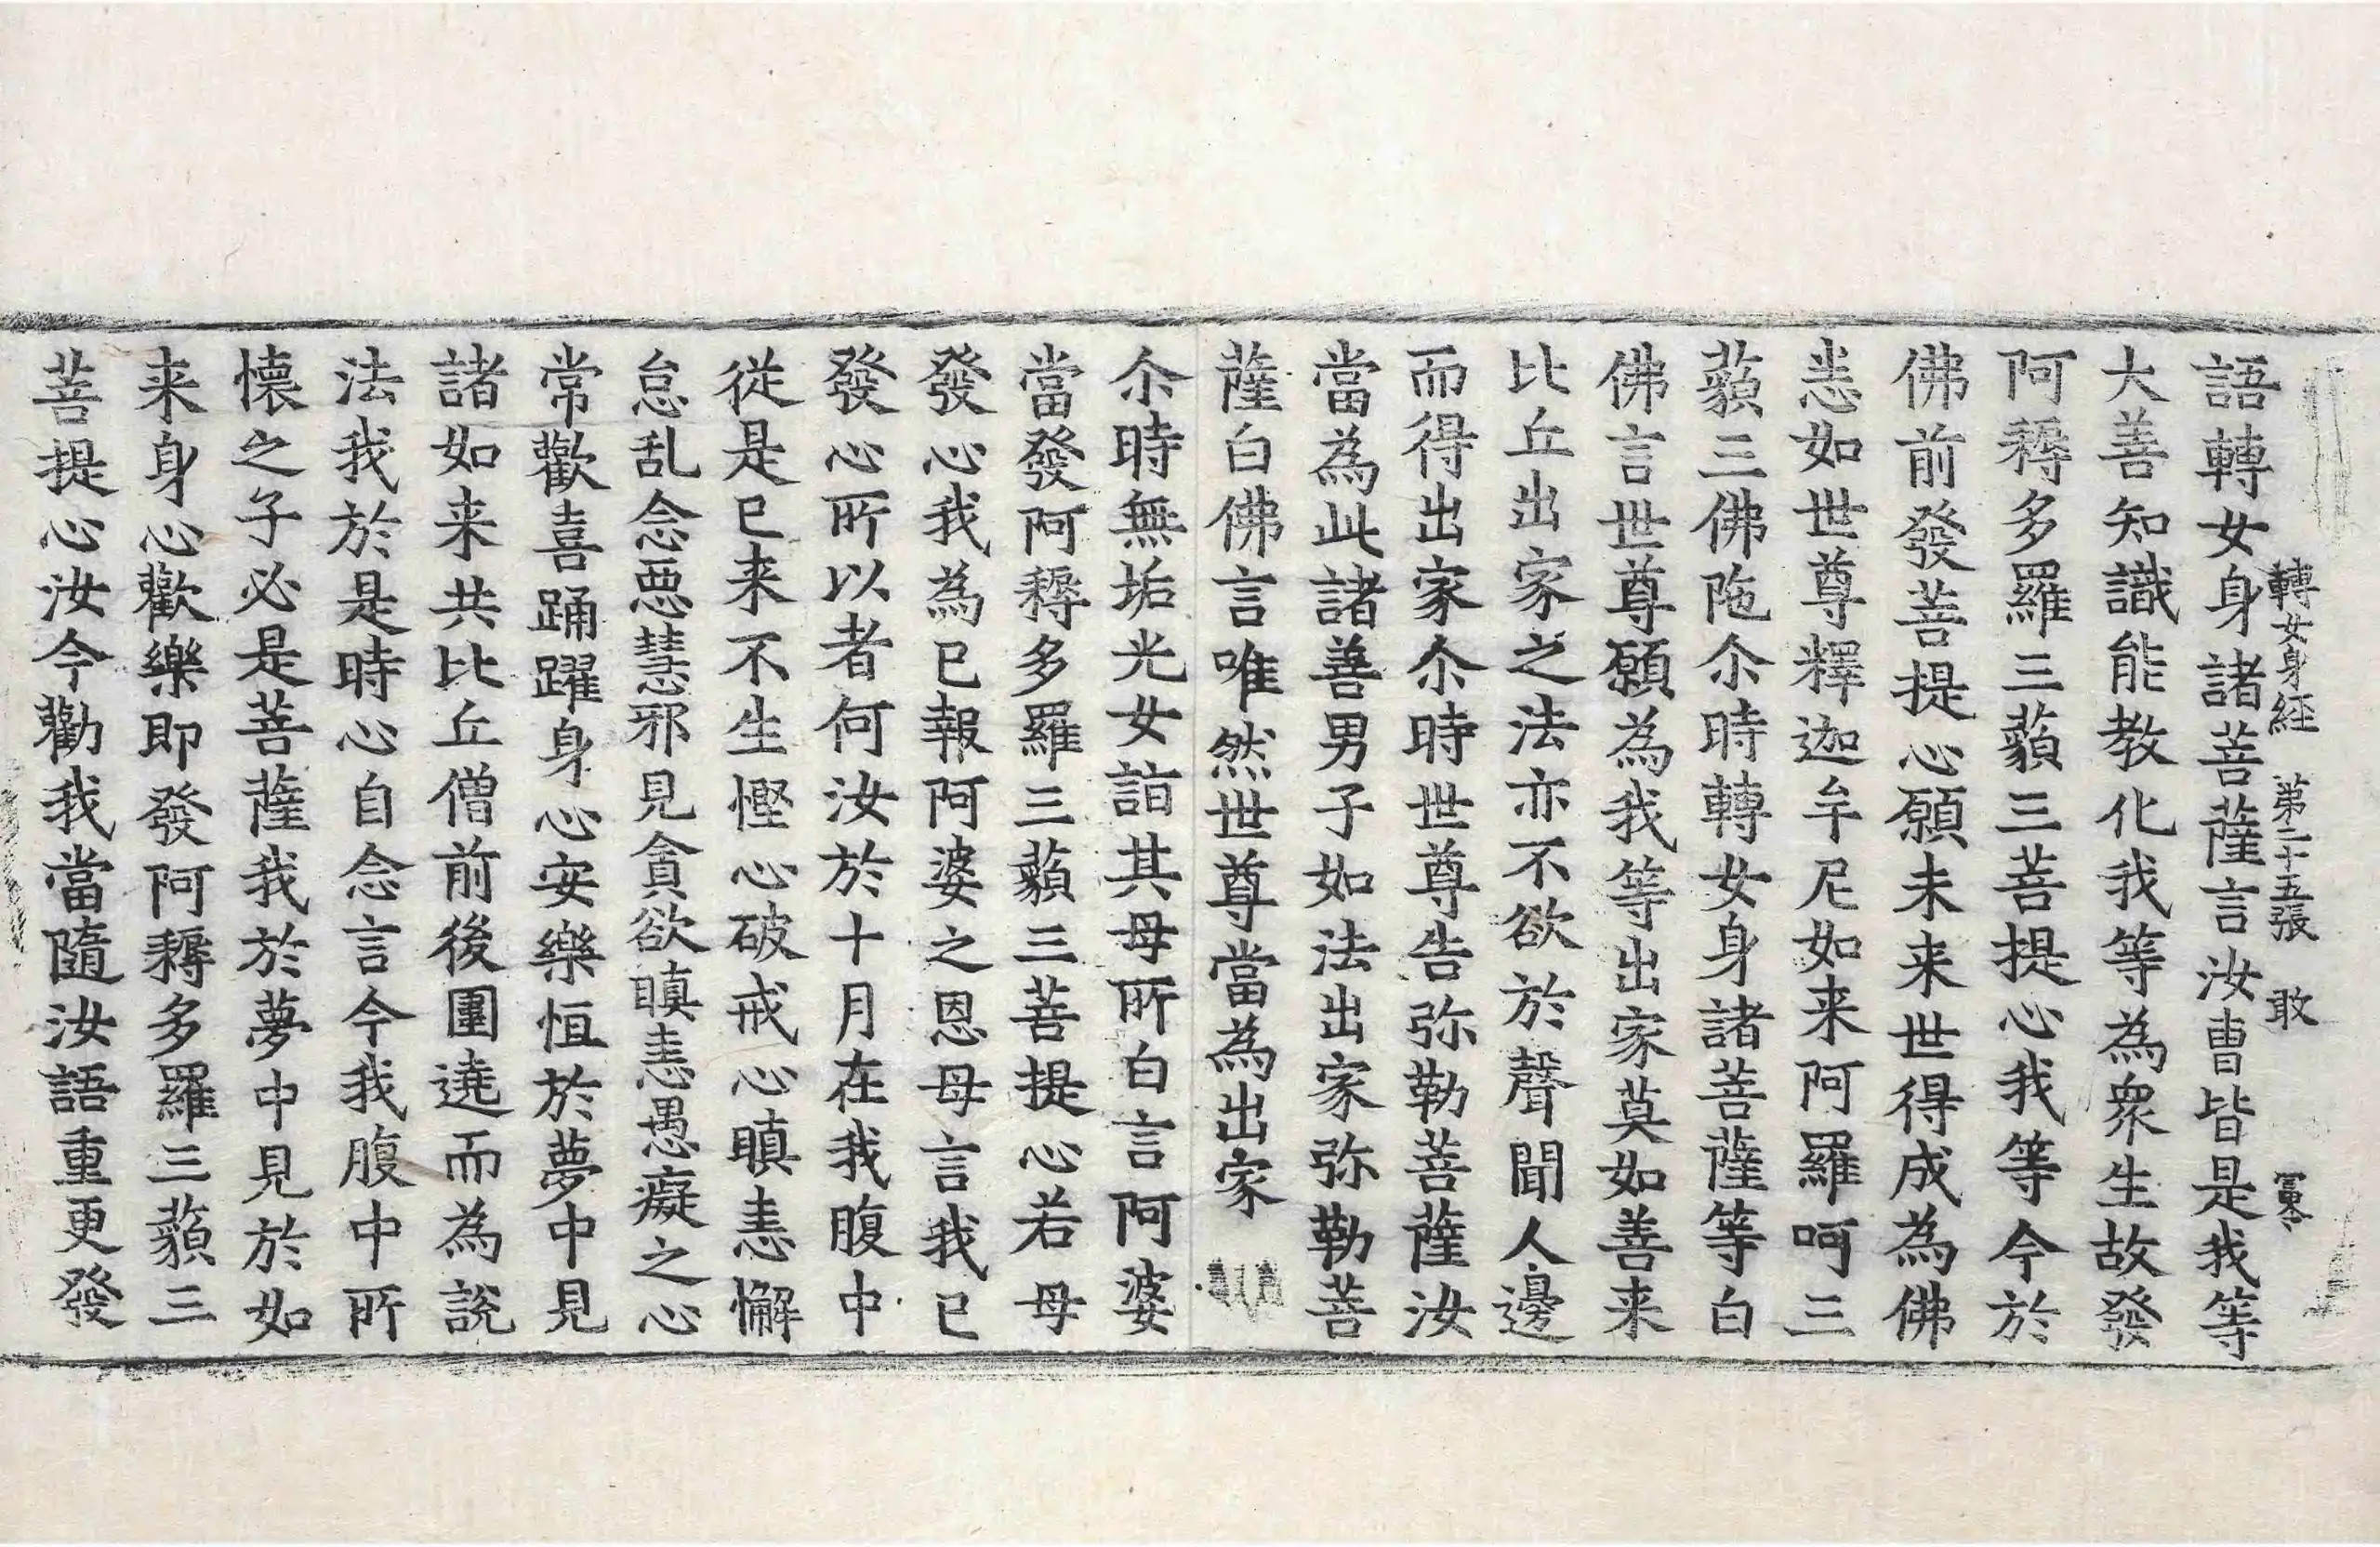 轉女身経 第二十五張 敢
語轉女身諸菩薩言汝曺皆是我等
大善知識能教化我等為衆生故發
阿耨多羅三藐三菩提心我等今於
佛前發菩提心願未来世得成為佛
恚如世尊釋迦牟尼如来阿羅呵三
藐三佛陁尒時轉女身諸菩薩等白
佛言世尊願為我等出家莫如善来
比丘出家之法亦不欲於聲聞人邊
而得出家尒時世尊告弥勒菩薩汝
當為此諸善男子如法出家弥勒菩
薩白佛言唯然世尊當為出家
尒時無垢光女詣其母所白言阿婆
當發阿耨多羅三藐三菩提心若母
發心我為已報阿婆之恩母言我已
發心所以者何汝於十月在我腹中
從是已来不生慳心破戒心瞋恚懈
怠乱念惡慧邪見貪欲瞋恚愚癡之心
常歡喜踊躍身心安樂恒於夢中見
諸如来共比丘僧前後圍遶而為說
法我於是時心自念言今我腹中所
懐之子必是菩薩我於夢中見於如
来身心歡樂即發阿耨多羅三藐三
菩提心汝今勸我當隨汝語重更發